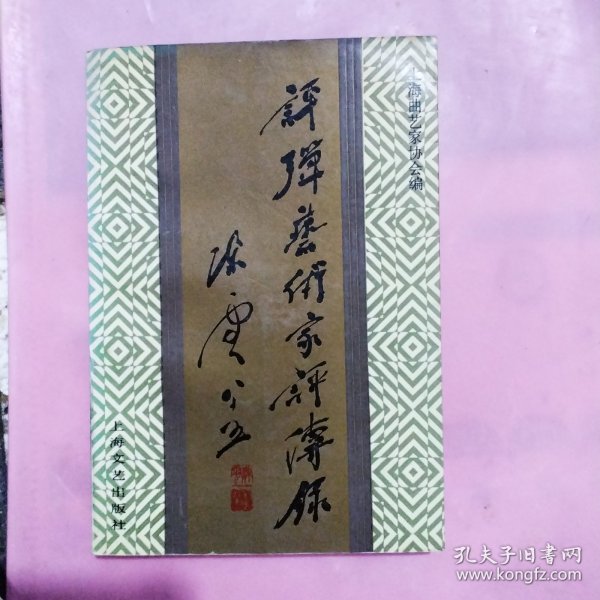 上海曲艺家协会编
評彈藝術家評傳録
陈雲
八五
上海文艺出版社
孔夫子旧书网
www.kongfz.com